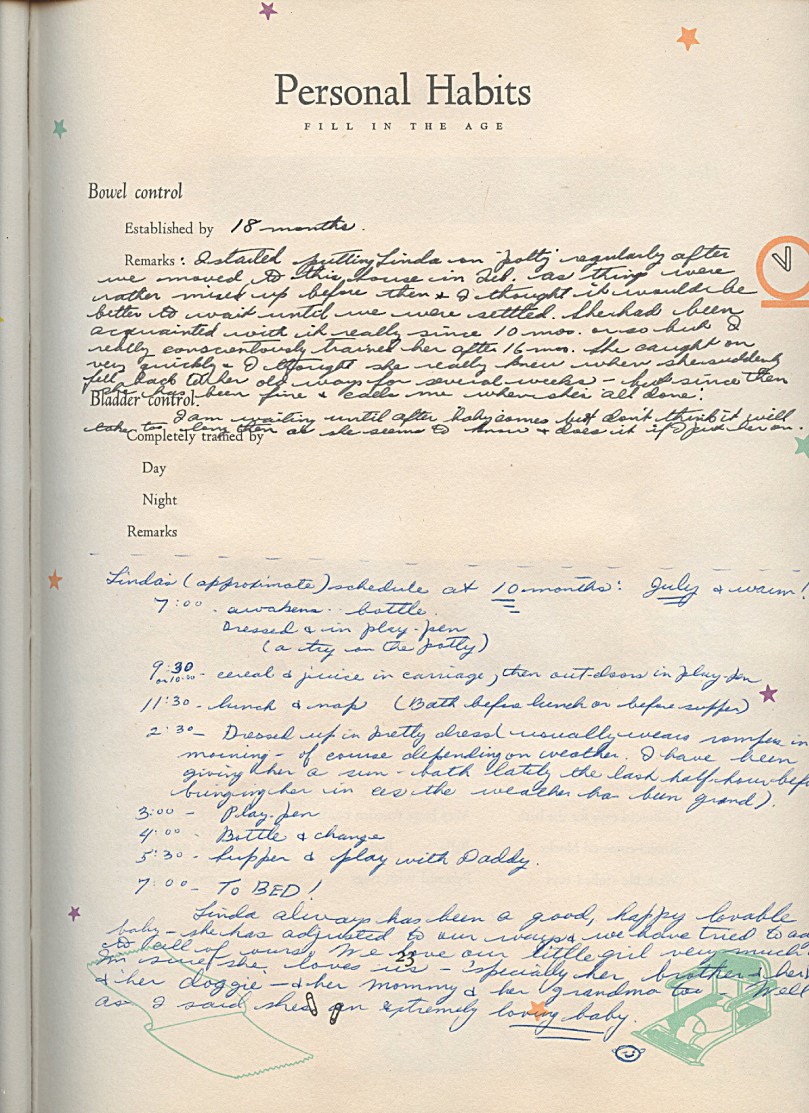 Personal Habits
FILL IN THE AGE
Bowel control
Established by 18 months.
Remarks: I started putting Linda on "potty" regularly after
we moved to this house in Feb. as things were
rather mixed up before then & I thought it would be
better to wait until we were settled. She had been
acquainted with it really since 10 mos. or so but I
really conscientously trained her after 16 mos. She caught on
very quickly & I thought she really knew where she suddenly
fell back to her old ways for several weeks - but since then
she has been fine & calls me when she's all done!
Bladder control
I am waiting until after baby comes but don't think it will
take too long then as she seems to know & does it if I put her on.
Completely trained by
Day
Night
Remarks
Linda's (approximate) schedule at 10 months: July & warm!
7:00 - awakens - bottle.
Dressed & in play-pen
(a try on the potty)
9:30 - cereal & juice in carriage, then out-doors in play-pen
or 10:00
11:30 - lunch & nap (Bath before lunch or before supper)
2:30 - Dressed up in pretty dress (usually wears romper in
morning - of course depending on weather. I have been
giving her a sun-bath lately the last half-hour befo
bringing her in as the weather has been grand).
3:00 - Play-pen
4:00 - Bottle & change
5:30 - Supper & play with Daddy.
7:00 - TO BED!
Linda always has been a good, happy lovable
baby - she has adjusted to our ways & we have tried to ad
to all of yours. We love our little girl very much.
I'm sure she loves us - 'specially her brother & her
23
& her doggie - & her mommy & her grandma too. Well
as I said she's an extremely loving baby.